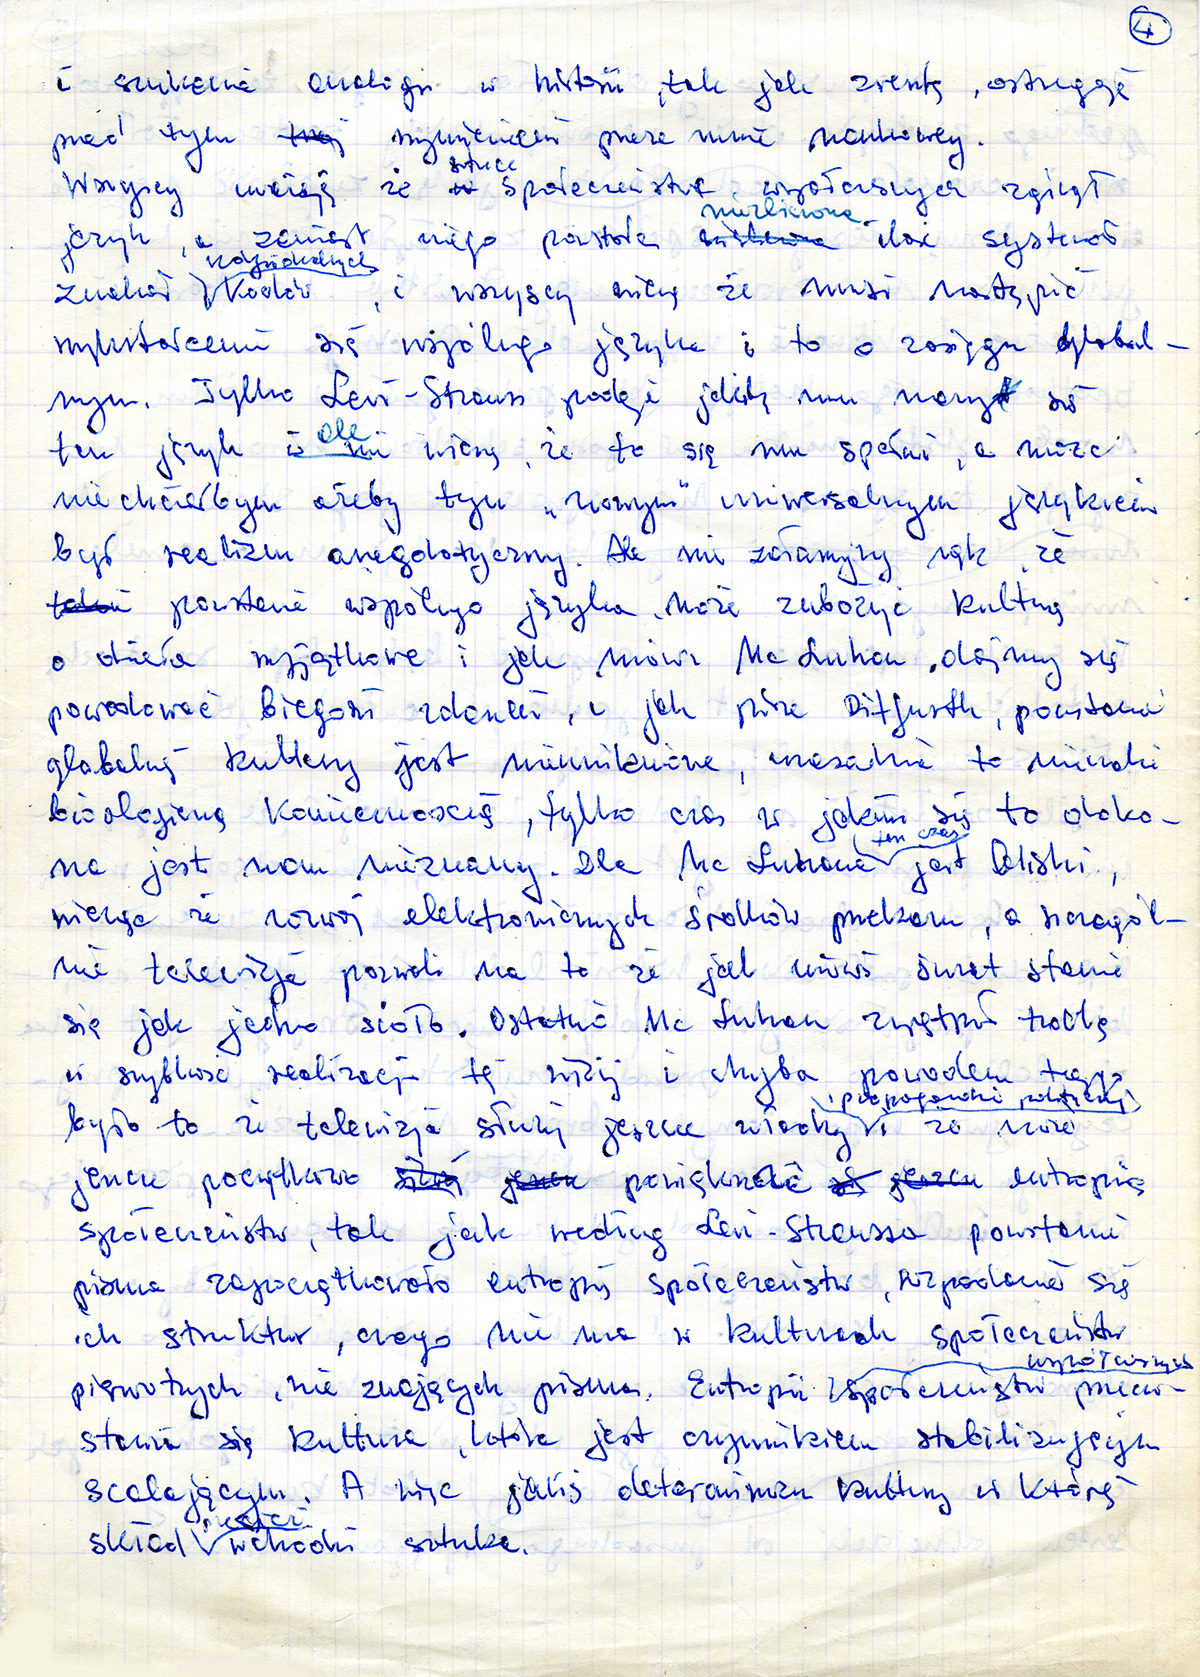 4
i szukanie analogii w historii, tak jak zresztą, ostrzegają
przed tym wymienieni przeze mnie naukowcy.
sztuce
Wszyscy uważają że społeczeństw współczesnych zginął
niezliczona
język, a zamiast niego powstała ilość systemów
indywidualnych
znaków kodów, i wszyscy wierzą że musi nastąpić
wykształcenie się wspólnego języka i to o zasięgu global-
nym. Tylko Levi-Strauss podaje jakiż on nowy
ale
ten język nie wierzy, że to się mu spełni, a może
nie chciałbym ażeby tym „nowym" uniwersalnym językiem
był realizm anegdotyczny. Ale nie załamujmy rąk, że
powstanie wspólnego języka może zubożyć kulturę
o dzieła wyjątkowe i jak mówi Mc Luhan, dajmy się
powodować biegowi zdarzeń, i jak pisze Ditfurth, powstanie
globalnej kultury jest nieuniknione, zasadnie to niemal
biologiczną koniecznością, tylko czas w jakim się to doko-
ten czas
na jest nam nieznany. Dla Mc Luhana jest bliski,
wierzy że rozwój elektronicznych środków przekazu, a szczegól-
nie telewizja pozwoli na to że jak mówi świat stanie
się jak jedno sioło. Ostatnio Mc Luhan zwątpił trochę
w szybkość realizacji tej wizji i chyba powodem tego
propagandzie politycznej
było to że telewizja służy jeszcze władzy i że może
jeszcze początkowo powiększać entropię
społeczeństw, tak jak według Levi-Straussa powstanie
pisma zapoczątkowało entropię społeczeństw, rozpadanie się
ich struktur, czego nie ma w kulturach społeczeństw
współczesnych
pierwotnych, nie znających pisma. Entropii społeczeństw przeciw-
stawia się kultura, która jest czynnikiem stabilizującym
scalającym. A więc jakiś determinizm kultury w której
skład wchodzi sztuka.